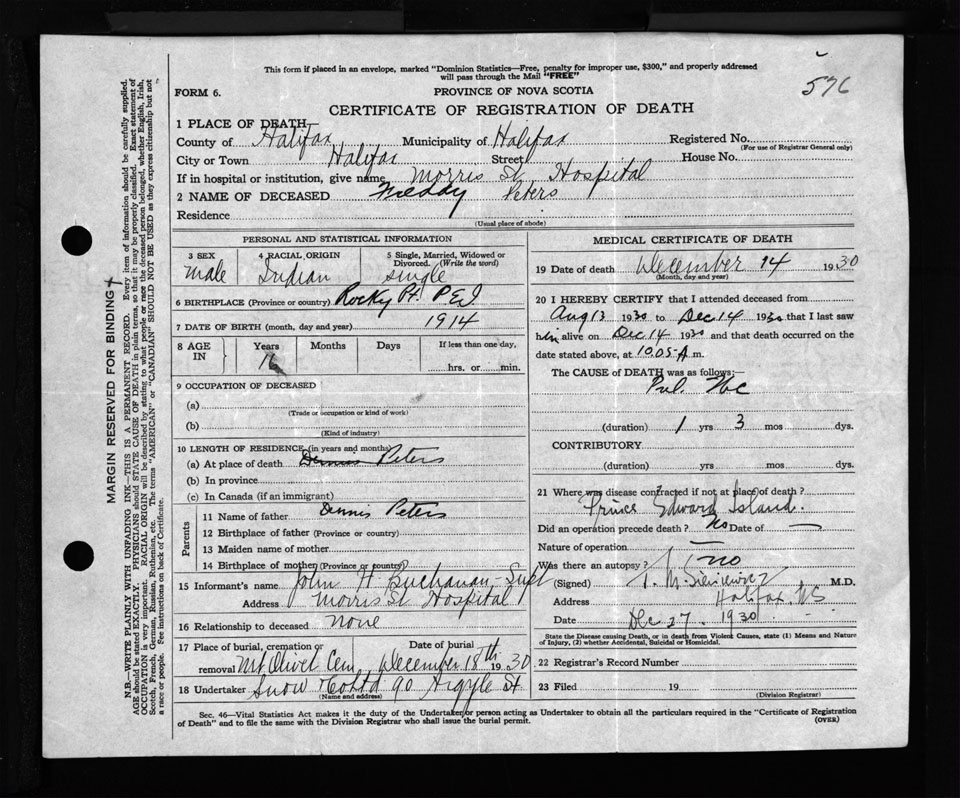 This form if placed in an envelope, marked "Dominion Statistics—Free, penalty for improper use, $300," and properly addressed
will pass through the Mail "FREE"
576
FORM 6.
PROVINCE OF NOVA SCOTIA
CERTIFICATE OF REGISTRATION OF DEATH
1 PLACE OF DEATH
County of Halifax Municipality of Halifax Registered No.
(For use of Registrar General only)
City or Town Halifax Street House No.
If in hospital or institution, give name Morris St. Hospital
2 NAME OF DECEASED Freddy Peters
Residence
(Usual place of abode)
PERSONAL AND STATISTICAL INFORMATION
3 SEX 4 RACIAL, ORIGIN 5 Single, Married, Widowed or
Divorced. (Write the word)
male Indian single
6 BIRTHPLACE (Province or country) Rocky Pt. P.E.I
7 DATE OF BIRTH (month, day and year) 1914
8 AGE IN Years Months Days If less than one day,
16 hrs. or min.
9 OCCUPATION OF DECEASED
(a)
(Trade or occupation or kind of work)
(b)
(Kind of industry)
10 LENGTH OF RESIDENCE (in years and months)
(a) At place of death Dennis Peters
(b) In province
(c) In Canada (if an immigrant)
Parents
11 Name of father Dennis Peters
12 Birthplace of father (Province or country)
13 Maiden name of mother
14 Birthplace of mother (Province or country)
15 Informant's name John H. Buchanan - Supt
Address Morris St. Hospital
16 Relationship to deceased none
17 Place of burial, cremation or Date of burial
removal Mt Olivet Cem. December 18th 1930
18 Undertaker Snow & Co Ltd 90 Argyle St.
(Name and address)
MEDICAL CERTIFICATE OF DEATH
19 Date of death December 14 1930
(Month, day and year)
20 I HEREBY CERTIFY that I attended deceased from
Aug 13 1930 to Dec 14 1930 that I last saw
him alive on Dec 14 1930 and that death occurred on
date stated above, at 10.05 A m.
The CAUSE OF DEATH was as follows:—
Pul. Tbc
(duration) 1 yrs 3 mos dys.
CONTRIBUTORY
(duration) yrs mos dys.
21 Where was disease contracted if not at place of death?
Prince Edward Island.
Did an operation precede death? No Date of —
Nature of operation —
Was there an autopsy? no
(Signed) M.D.
Address Halifax, N.S
Date Dec 27. 1930
State the Disease causing Death, or in death from Violent Causes, state (1) Means and Nature
of Injury, (2) whether Accidental, Suicidal or Homicidal.
22 Registrar's Record Number
23 Filed 19
(Division Registrar)
Sec. 46—Vital Statistics Act makes it the duty of the Undertaker or person acting as Undertaker to obtain all the particulars required in the "Certificate of Registration
of Death" and to file the same with the Division Registrar who shall issue the burial permit.
(OVER)
MARGIN RESERVED FOR BINDING
N.B.—WRITE PLAINLY WITH UNFADING INK—THIS IS A PERMANENT RECORD. Every item of information should be carefully supplied.
AGE should be stated EXACTLY. PHYSICIANS should STATE CAUSE OF DEATH in plain terms, so that it may be properly classified. Exact statement of
OCCUPATION is very important. RACIAL ORIGIN will be described by stating to what people or race the deceased person belonged, whether English, Irish,
Scotch, French, German, Russian, Ruthenian, etc. The terms "AMERICAN" or "CANADIAN" SHOULD NOT BE USED as they express citizenship but not
a race or people. See instructions on back of Certificate.